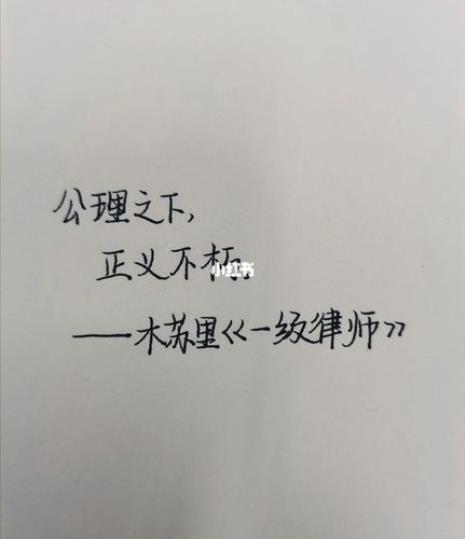 公理之下，
正义不朽。
小红书
——木苏里《一级律师》